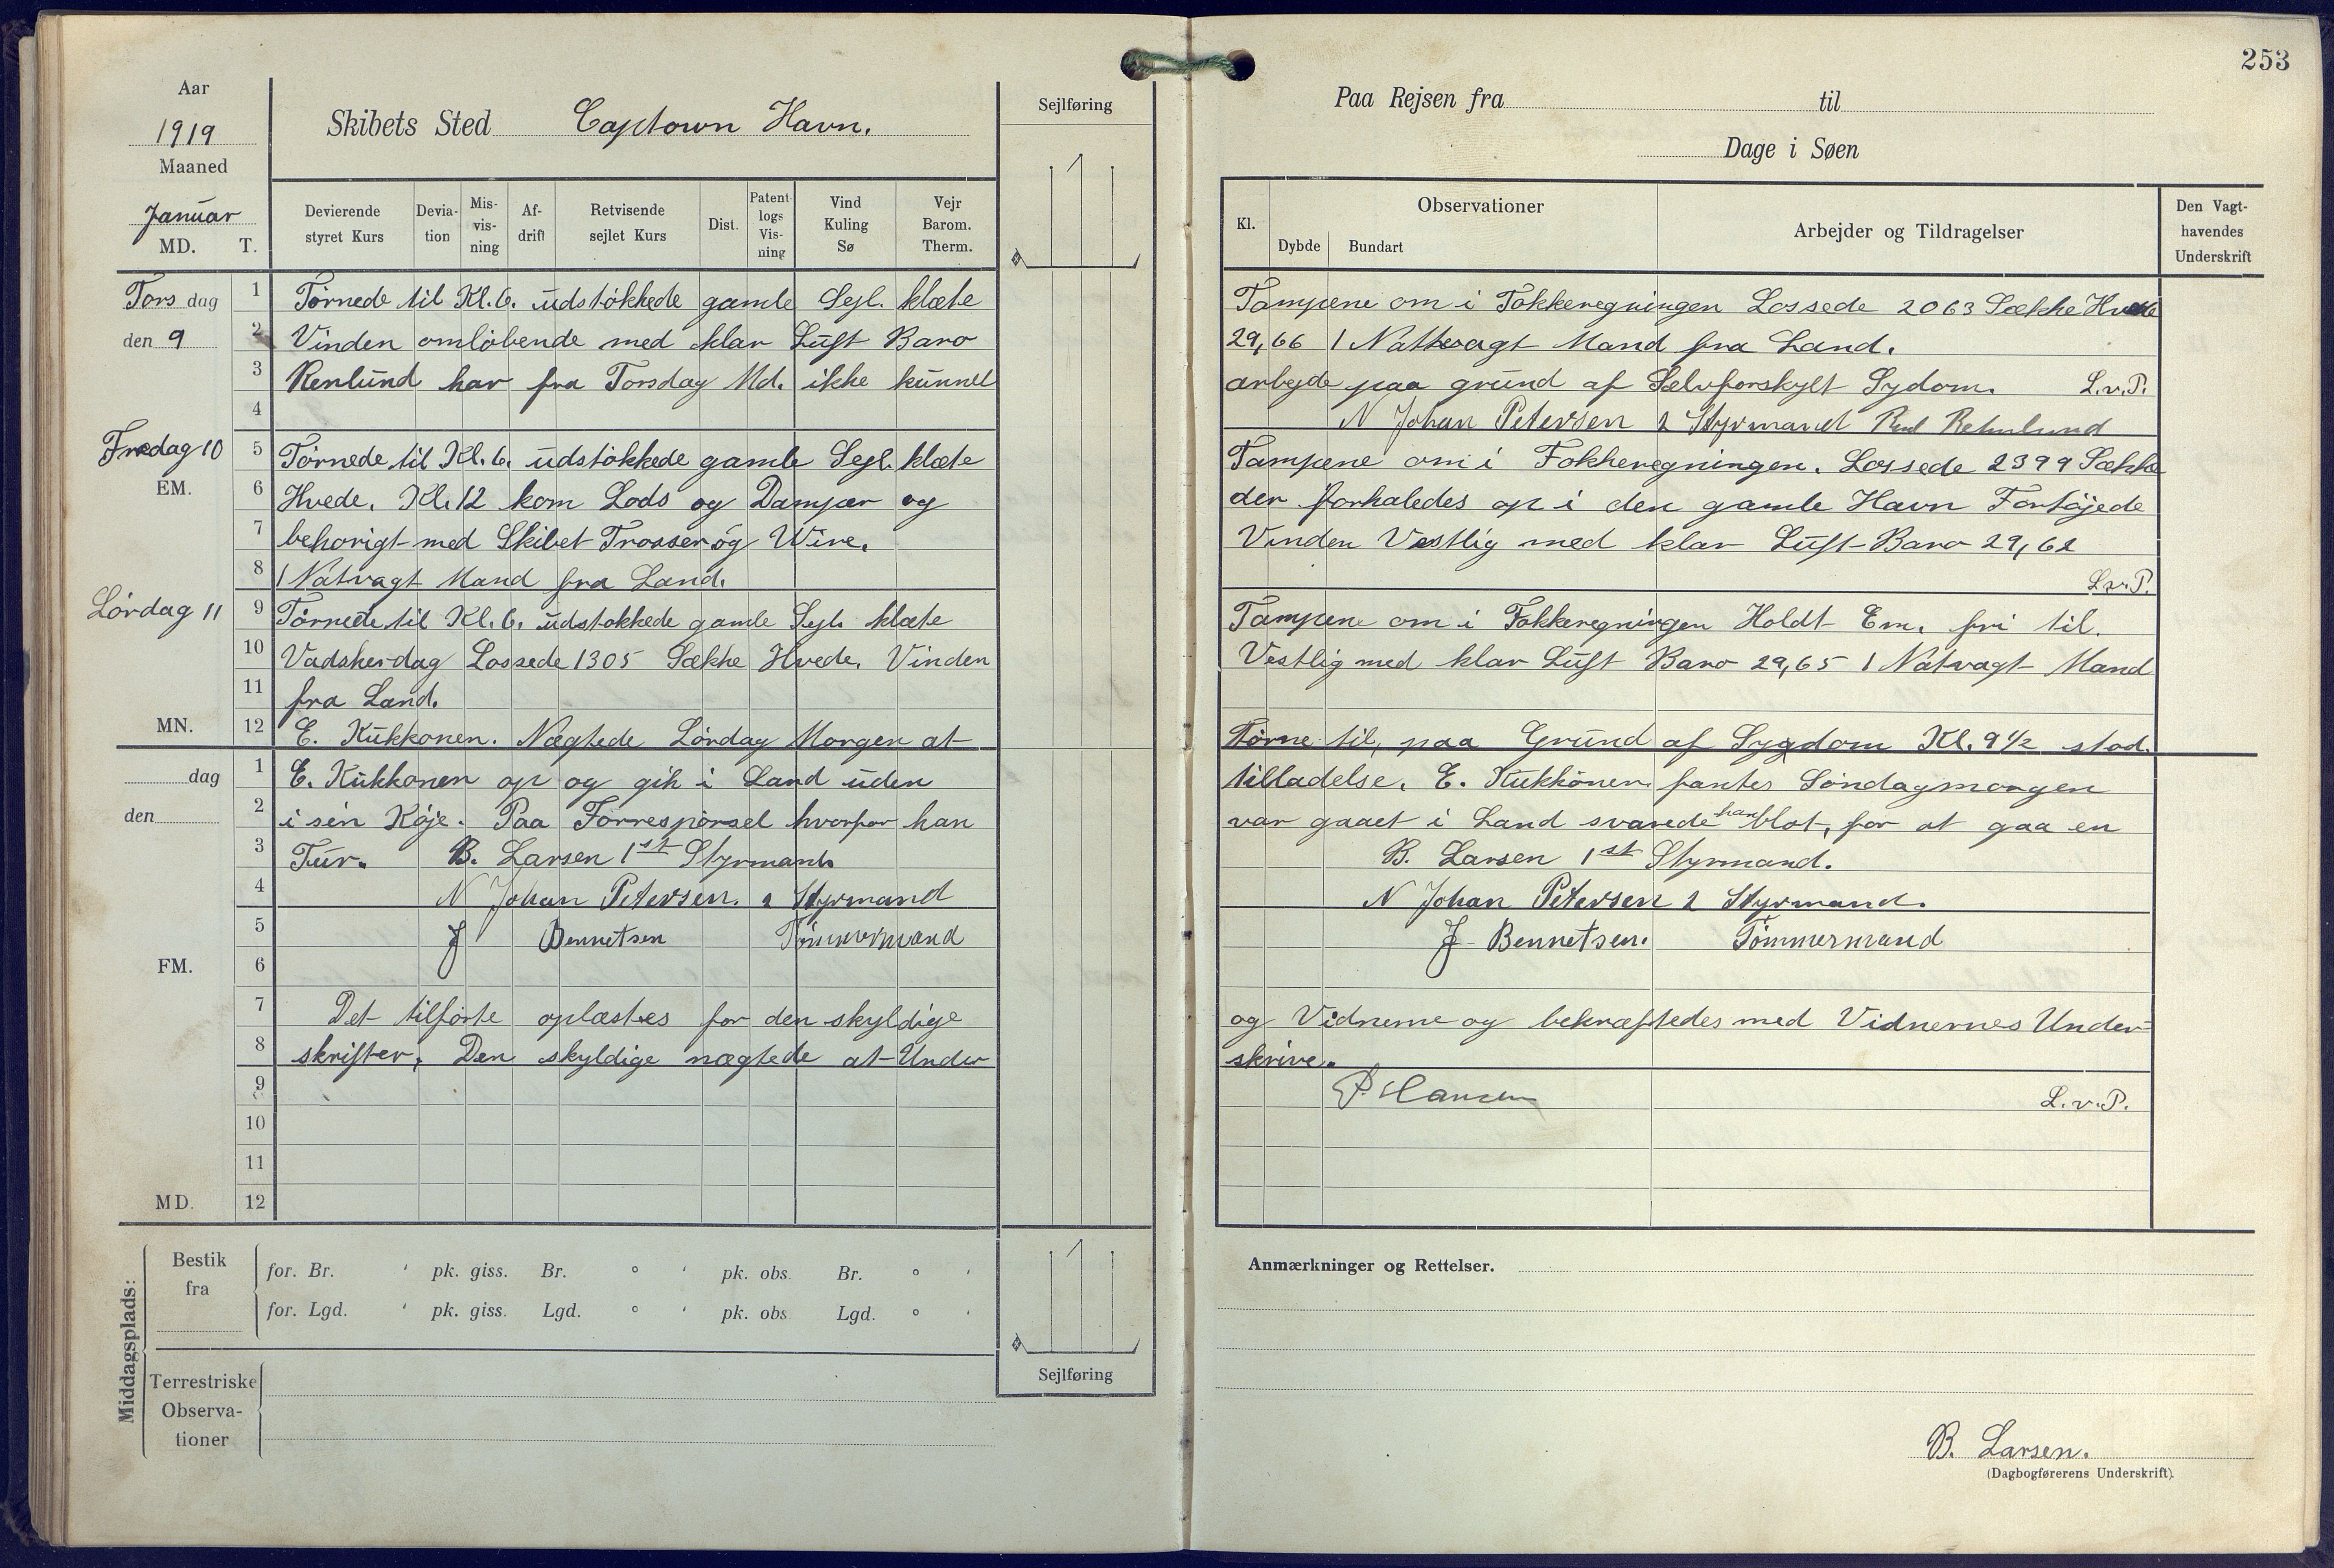 253
Aar
1919
Maaned
Januar
MD. T.
Skibets Sted Captown Havn.
Sejlføring
Paa Rejsen fra til
Dage i Søen
Devierende styret Kurs
Devia-tion
Mis-vis-ning
Af-drift
Retvisende sejlet Kurs
Dist.
Patent logs Vis-ning
Vind Kuling Sø
Vejr Barom. Therm.
Kl.
Observationer
Dybde Bundart
Arbejder og Tildragelser
Den Vagt-havendes Underskrift
Torsdag 1 Törnede til Kl. 6. udstökkede gamle Sejl. klæte Tampene om i Fokkeregningen Lossede 2063 Sække Hvede
den 9 2 Vinden omlöbende med klar Luft Baro 29,66 1 Nattevagt Mand fra Land.
3 Renlund har fra Torsdag Md. ikke kunnet arbejde paa grund af Selvforskylt Sydom. L.v.P.
4 N Johan Petersen 2 Styrmand
Fredag 10 5 Törnede til Kl. 6. udstökkede gamle Sejl. klæte Tampene om i Fokkeregningen. Lossede 2399 Sække
EM. 6 Hvede. Kl. 12 kom Lods og Damper og der forhaledes op i den gamle Havn Fortöjede
7 behorigt med Skibet Trosser og Wire. Vinden Vestlig med klar Luft Baro 29,62
8 1 Natvagt Mand fra Land. L.v.P.
Lördag 11 9 Törnede til Kl. 6. udstokkede gamle Sejl. klæte Tampene om i Fokkeregningen Holdt Em. fri til.
10 Vadskerdag Lossede 1305 Sække Hvede. Vinden Vestlig med klar Luft Baro 29,65 1 Natvagt Mand
11 fra Land.
MN. 12 E. Kukkonen. Nægtede Lördag Morgen at Törne til, paa Grund af Sygdom Kl. 9½ stod.
dag 1 E. Kukkonen op og gik i Land uden tilladelse. E. Kukkonen fantes Söndagmorgen
den 2 i sin Köje. Paa Forrespörsel hvorfor han var gaaet i Land svarede han blot, for at gaa en
3 Tur. B. Larsen 1st Styrmand. B. Larsen 1st Styrmand.
4 N Johan Petersen. 2 Styrmand N Johan Petersen 2 Styrmand.
5 J Bennetsen Tömmermand J Bennetsen. Tömmermand
FM. 6
7 Det tilförte oplæstes for den skyldige og Vidnerne og bekræftedes med Vidnernes Under-
8 skrifter, Den skyldige nægtede at Under skrive.
9 P. Hansen L.v.P.
10
11
MD. 12
Middagsplads:
Bestik fra
for. Br. ' pk. giss. Br. ° ' pk. obs. Br. ° '
for. Lgd. ' pk. giss. Lgd. ° ' pk. obs. Lgd. ° '
Terrestriske Observa-tioner
Sejlføring
Anmærkninger og Rettelser.
B. Larsen.
(Dagbogførerens Underskrift).